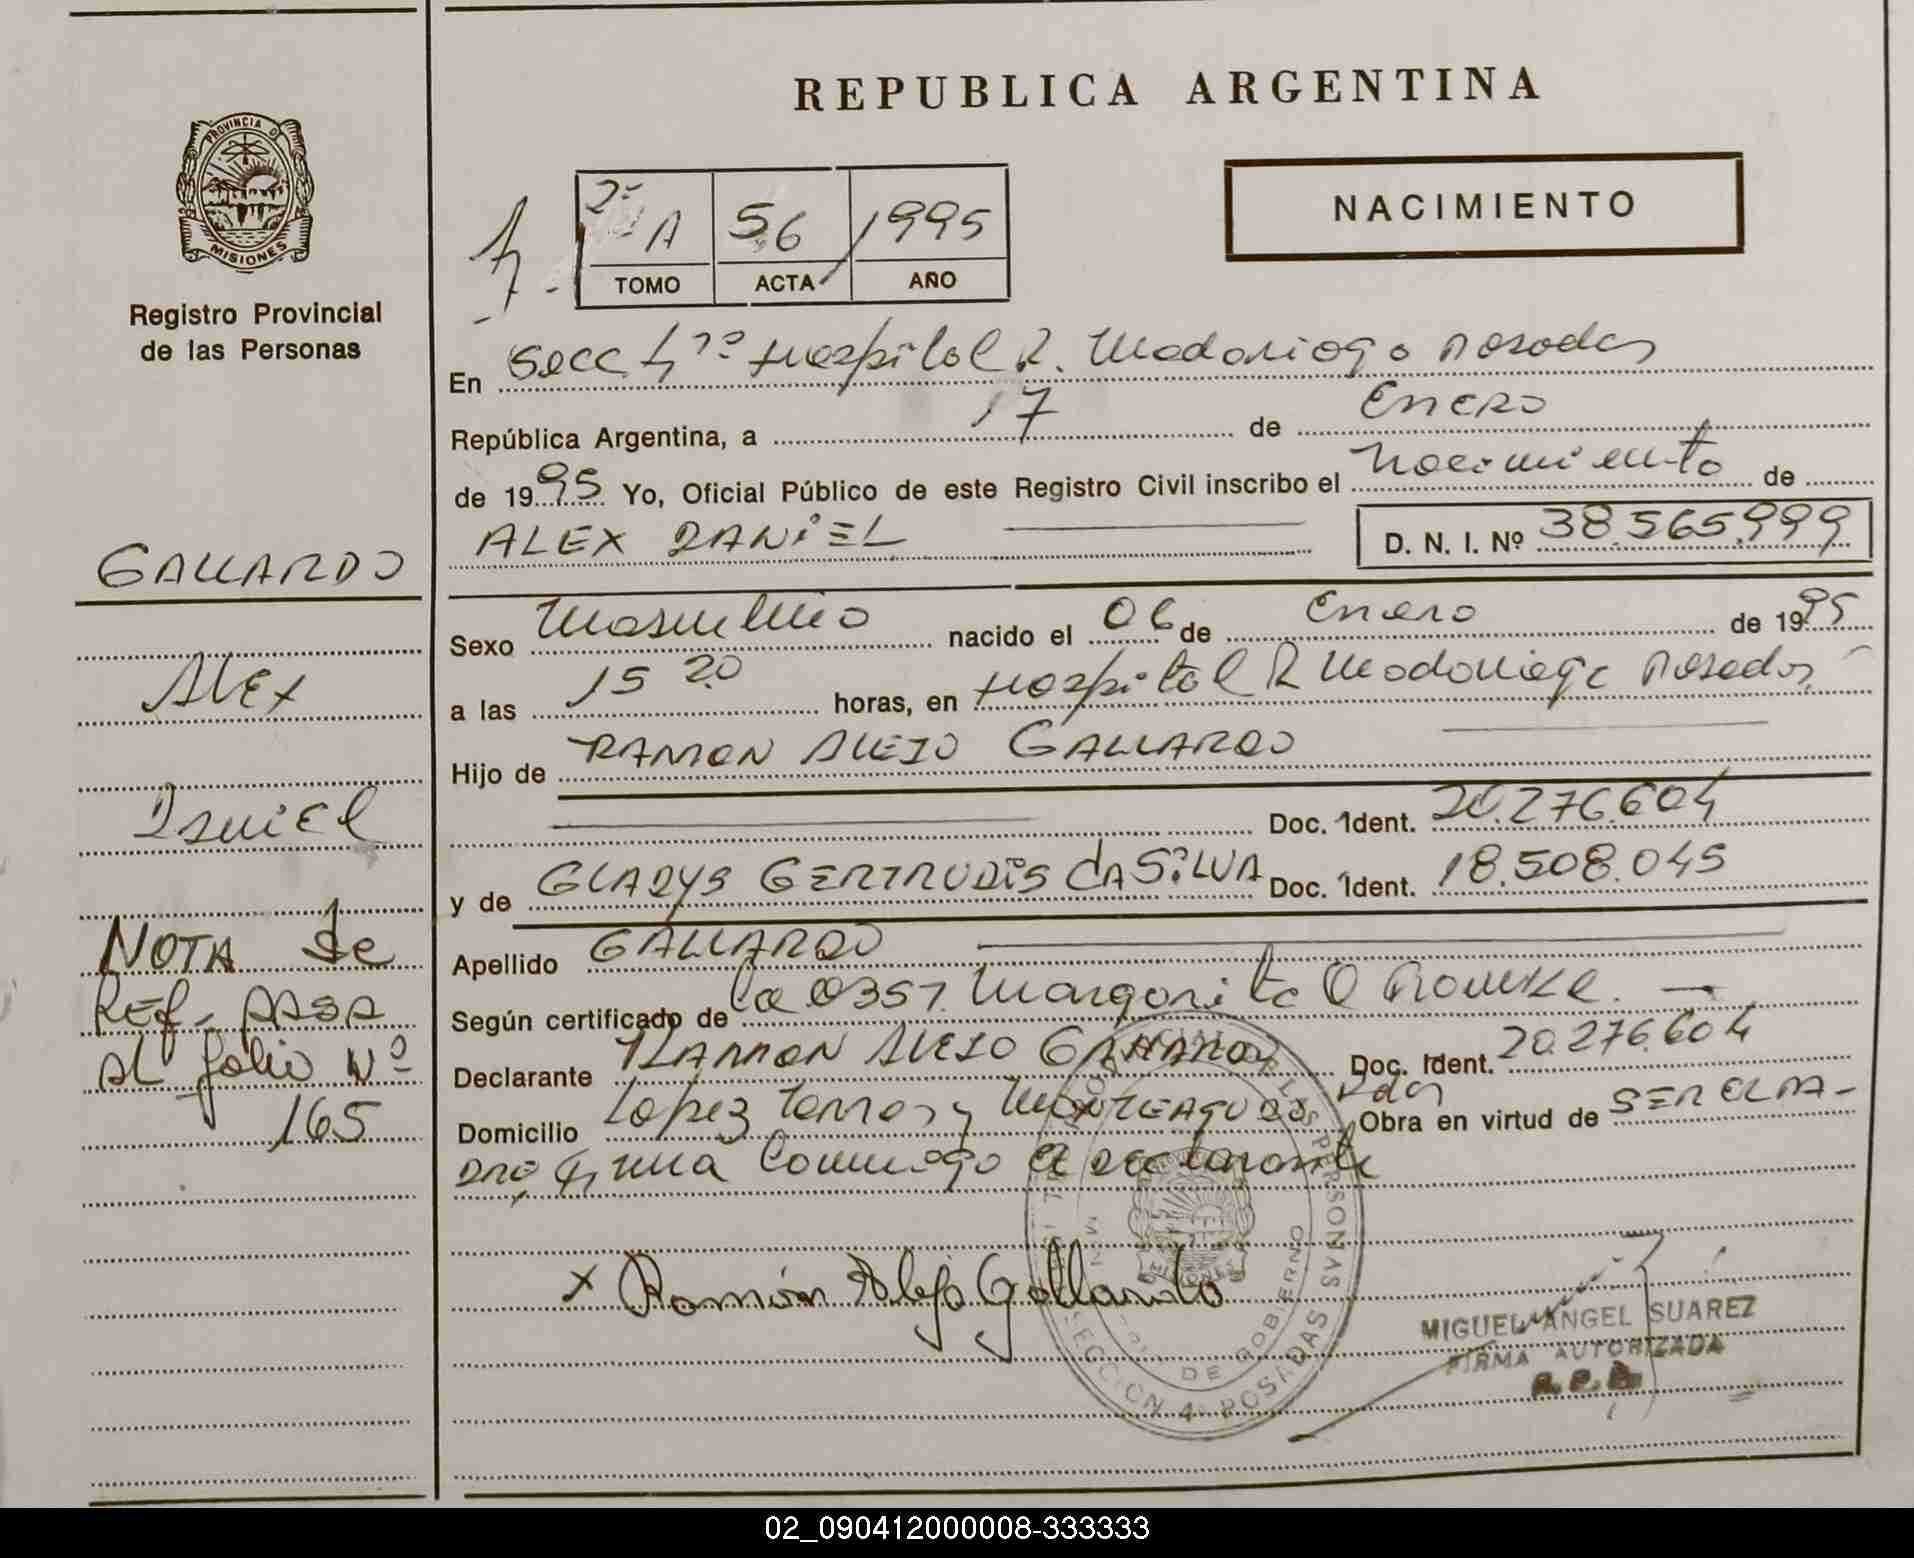 REPUBLICA ARGENTINA
NACIMIENTO
PROVINCIA D
MISIONES
Registro Provincial
de las Personas
2ª A 56 1995
TOMO ACTA AÑO
En Secc 4ta Hospital R. Madariaga Posadas
República Argentina, a 17 de Enero
de 1995 Yo, Oficial Público de este Registro Civil inscribo el Nacimiento de
ALEX DANIEL D. N. I. Nº 38.565.999
Sexo Masculino nacido el 06 de Enero de 1995
a las 15 20 horas, en Hospital R Madariaga Posadas
Hijo de RAMON ALEJO GALLARDO
Doc. Ident. 20.276.604
y de GLADYS GERTRUDIS DA SILVA Doc. Ident. 18.508.045
Apellido GALLARDO
Según certificado de la 0357. Margarita O Rourke.
Declarante RAMON ALEJO GALLARDO Doc. Ident. 20.276.604
Domicilio Lopez Torres y MONTEAGUDO Pdas Obra en virtud de SER EL PA-
DRE, firma Conmigo el declarante
x Ramón Alejo Gallardo
MIGUEL ANGEL SUAREZ
FIRMA AUTORIZADA
SECCION 4ª POSADAS
DE GOBIERNO
MISIONES
GALLARDO
Alex
Daniel
NOTA de
REf. PASA
AL folio Nº
165
02_090412000008-333333